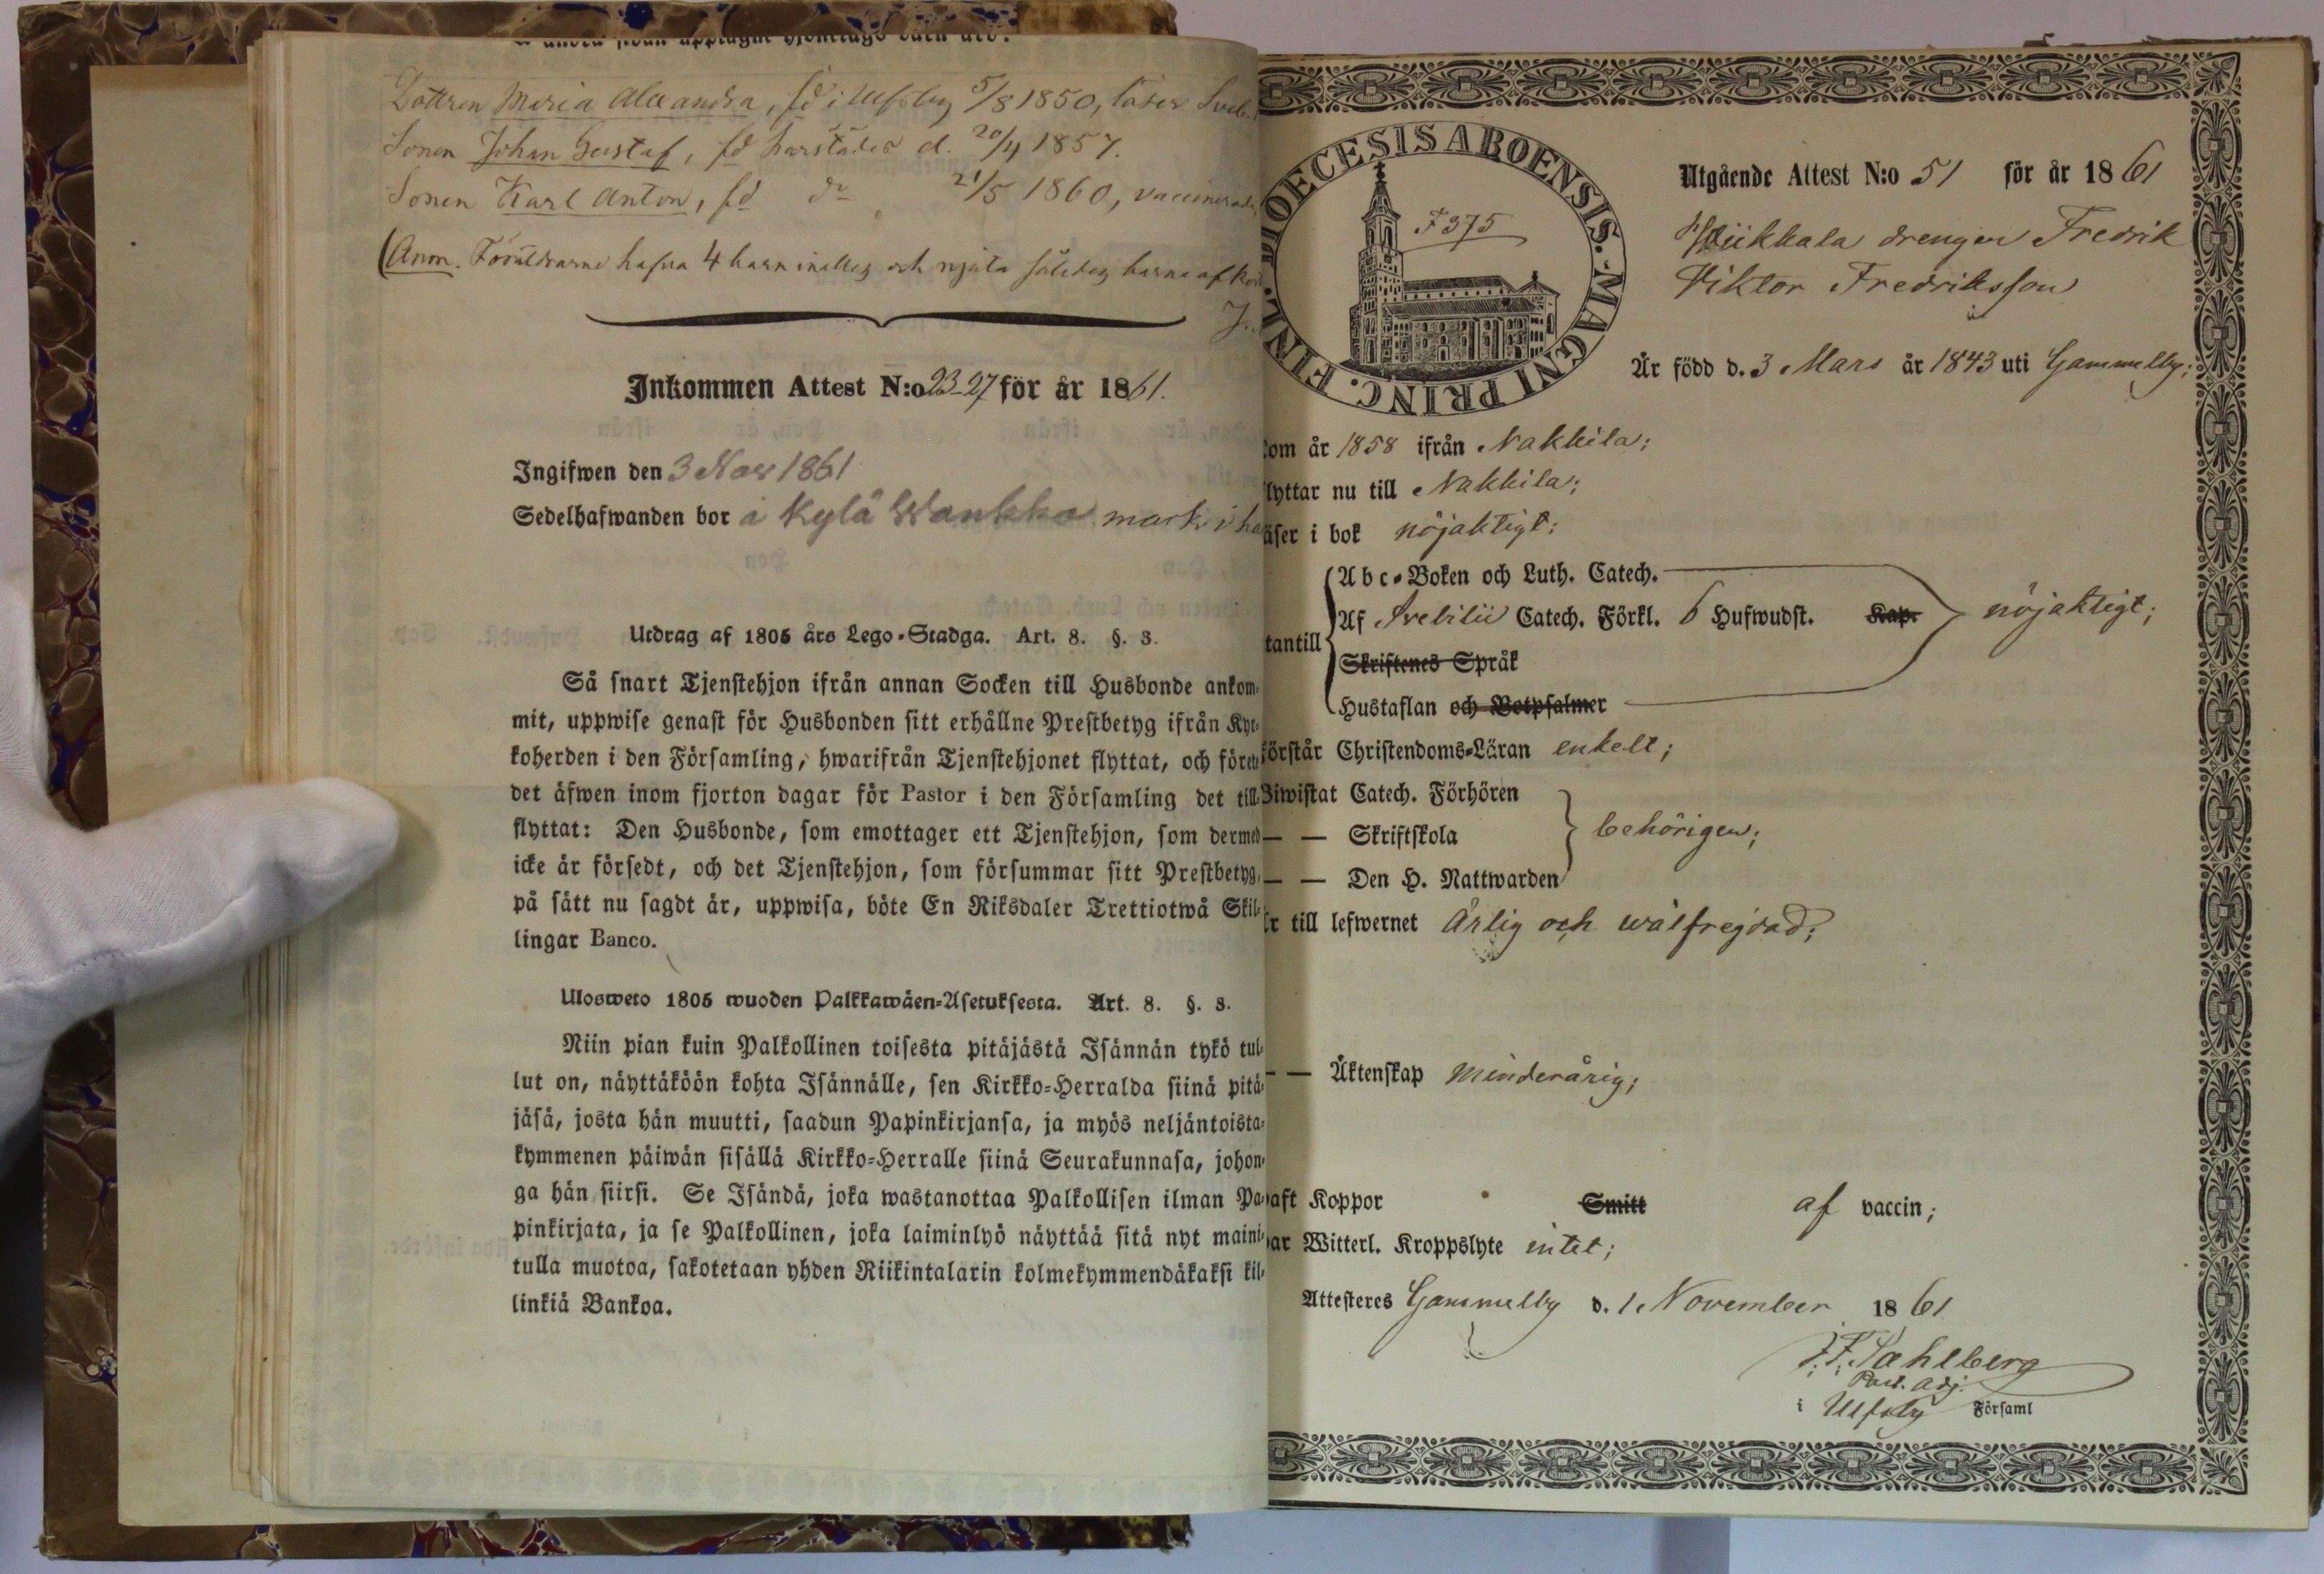 Dottren Maria Alexandra, fd i Ulfsby 5/8 1850, läser Sveb.
Sonen Johan Gustaf, fd härstädes d. 20/4 1857.
Sonen Karl Anton, fd do 21/5 1860, vaccinerade
(Anm. Föräldrarne hafva 4 barn inalles och njuta således
J.
Inkommen Attest N:o 23-27 för år 1861.
Ingifwen den 3 Nov 1861
Sedelhafwanden bor å Kylä Wankka mark i
Utdrag af 1805 års Lego-Stadga. Art. 8. §. 3.
Så snart Tjenstehjon ifrån annan Socken till Husbonde ankom-
mit, uppwise genast för Husbonden sitt erhållne Prestbetyg ifrån Kyr-
koherden i den Församling, hwarifrån Tjenstehjonet flyttat, och förete
det äfwen inom fjorton dagar för Pastor i den Församling det till-
flyttat: Den Husbonde, som emottager ett Tjenstehjon, som dermed
icke är försedt, och det Tjenstehjon, som försummar sitt Prestbetyg,
på sätt nu sagdt är, uppwisa, böte En Riksdaler Trettiotwå Skil-
lingar Banco.
Ulosweto 1805 wuoden Palkkawäen-Asetuksesta. Art. 8. §. 3.
Niin pian kuin Palkollinen toisesta pitäjästä Isännän tykö tul-
lut on, näyttäköön kohta Isännälle, sen Kirkko-Herralda siinä pitä-
jäsä, josta hän muutti, saadun Papinkirjansa, ja myös neljäntoista-
kymmenen päiwän sisällä Kirkko-Herralle siinä Seurakunnasa, johon-
ga hän siirsi. Se Isändä, joka wastanottaa Palkollisen ilman Pa-
pinkirjata, ja se Palkollinen, joka laiminlyö näyttää sitä nyt maini-
tulla muotoa, sakotetaan yhden Riikintalarin kolmekymmendäkaksi kil-
linkiä Bankoa.
DIOECESIS ABOENSIS. MAGNI PRINC. FINL.
F 375
Utgående Attest N:o 51 för år 1861
drengen Fredrik
Viktor Fredriksson
Är född d. 3 Mars år 1843 uti Gammelby;
kom år 1858 ifrån Nakkila;
flyttar nu till Nakkila;
läser i bok nöjaktigt;
Abc-Boken och Luth. Catech.
Af Svebilii Catech. Förkl. 6 Hufwudst. Kap. nöjaktigt;
utantill
Skriftenes Språk
Hustaflan och Botpsalmer
förstår Christendoms-Läran enkelt;
Biwistat Catech. Förhören
— — Skriftskola behörigen;
— — Den H. Nattwarden
Är till lefwernet ärlig och wälfrejdad;
— — Äktenskap minderårig;
haft Koppor Smitt af vaccin;
har Witterl. Kroppslyte intet;
Attesteres Gammelby d. 1 November 1861
J. F. Sahlberg
Past. adj.
i Ulfsby Församl